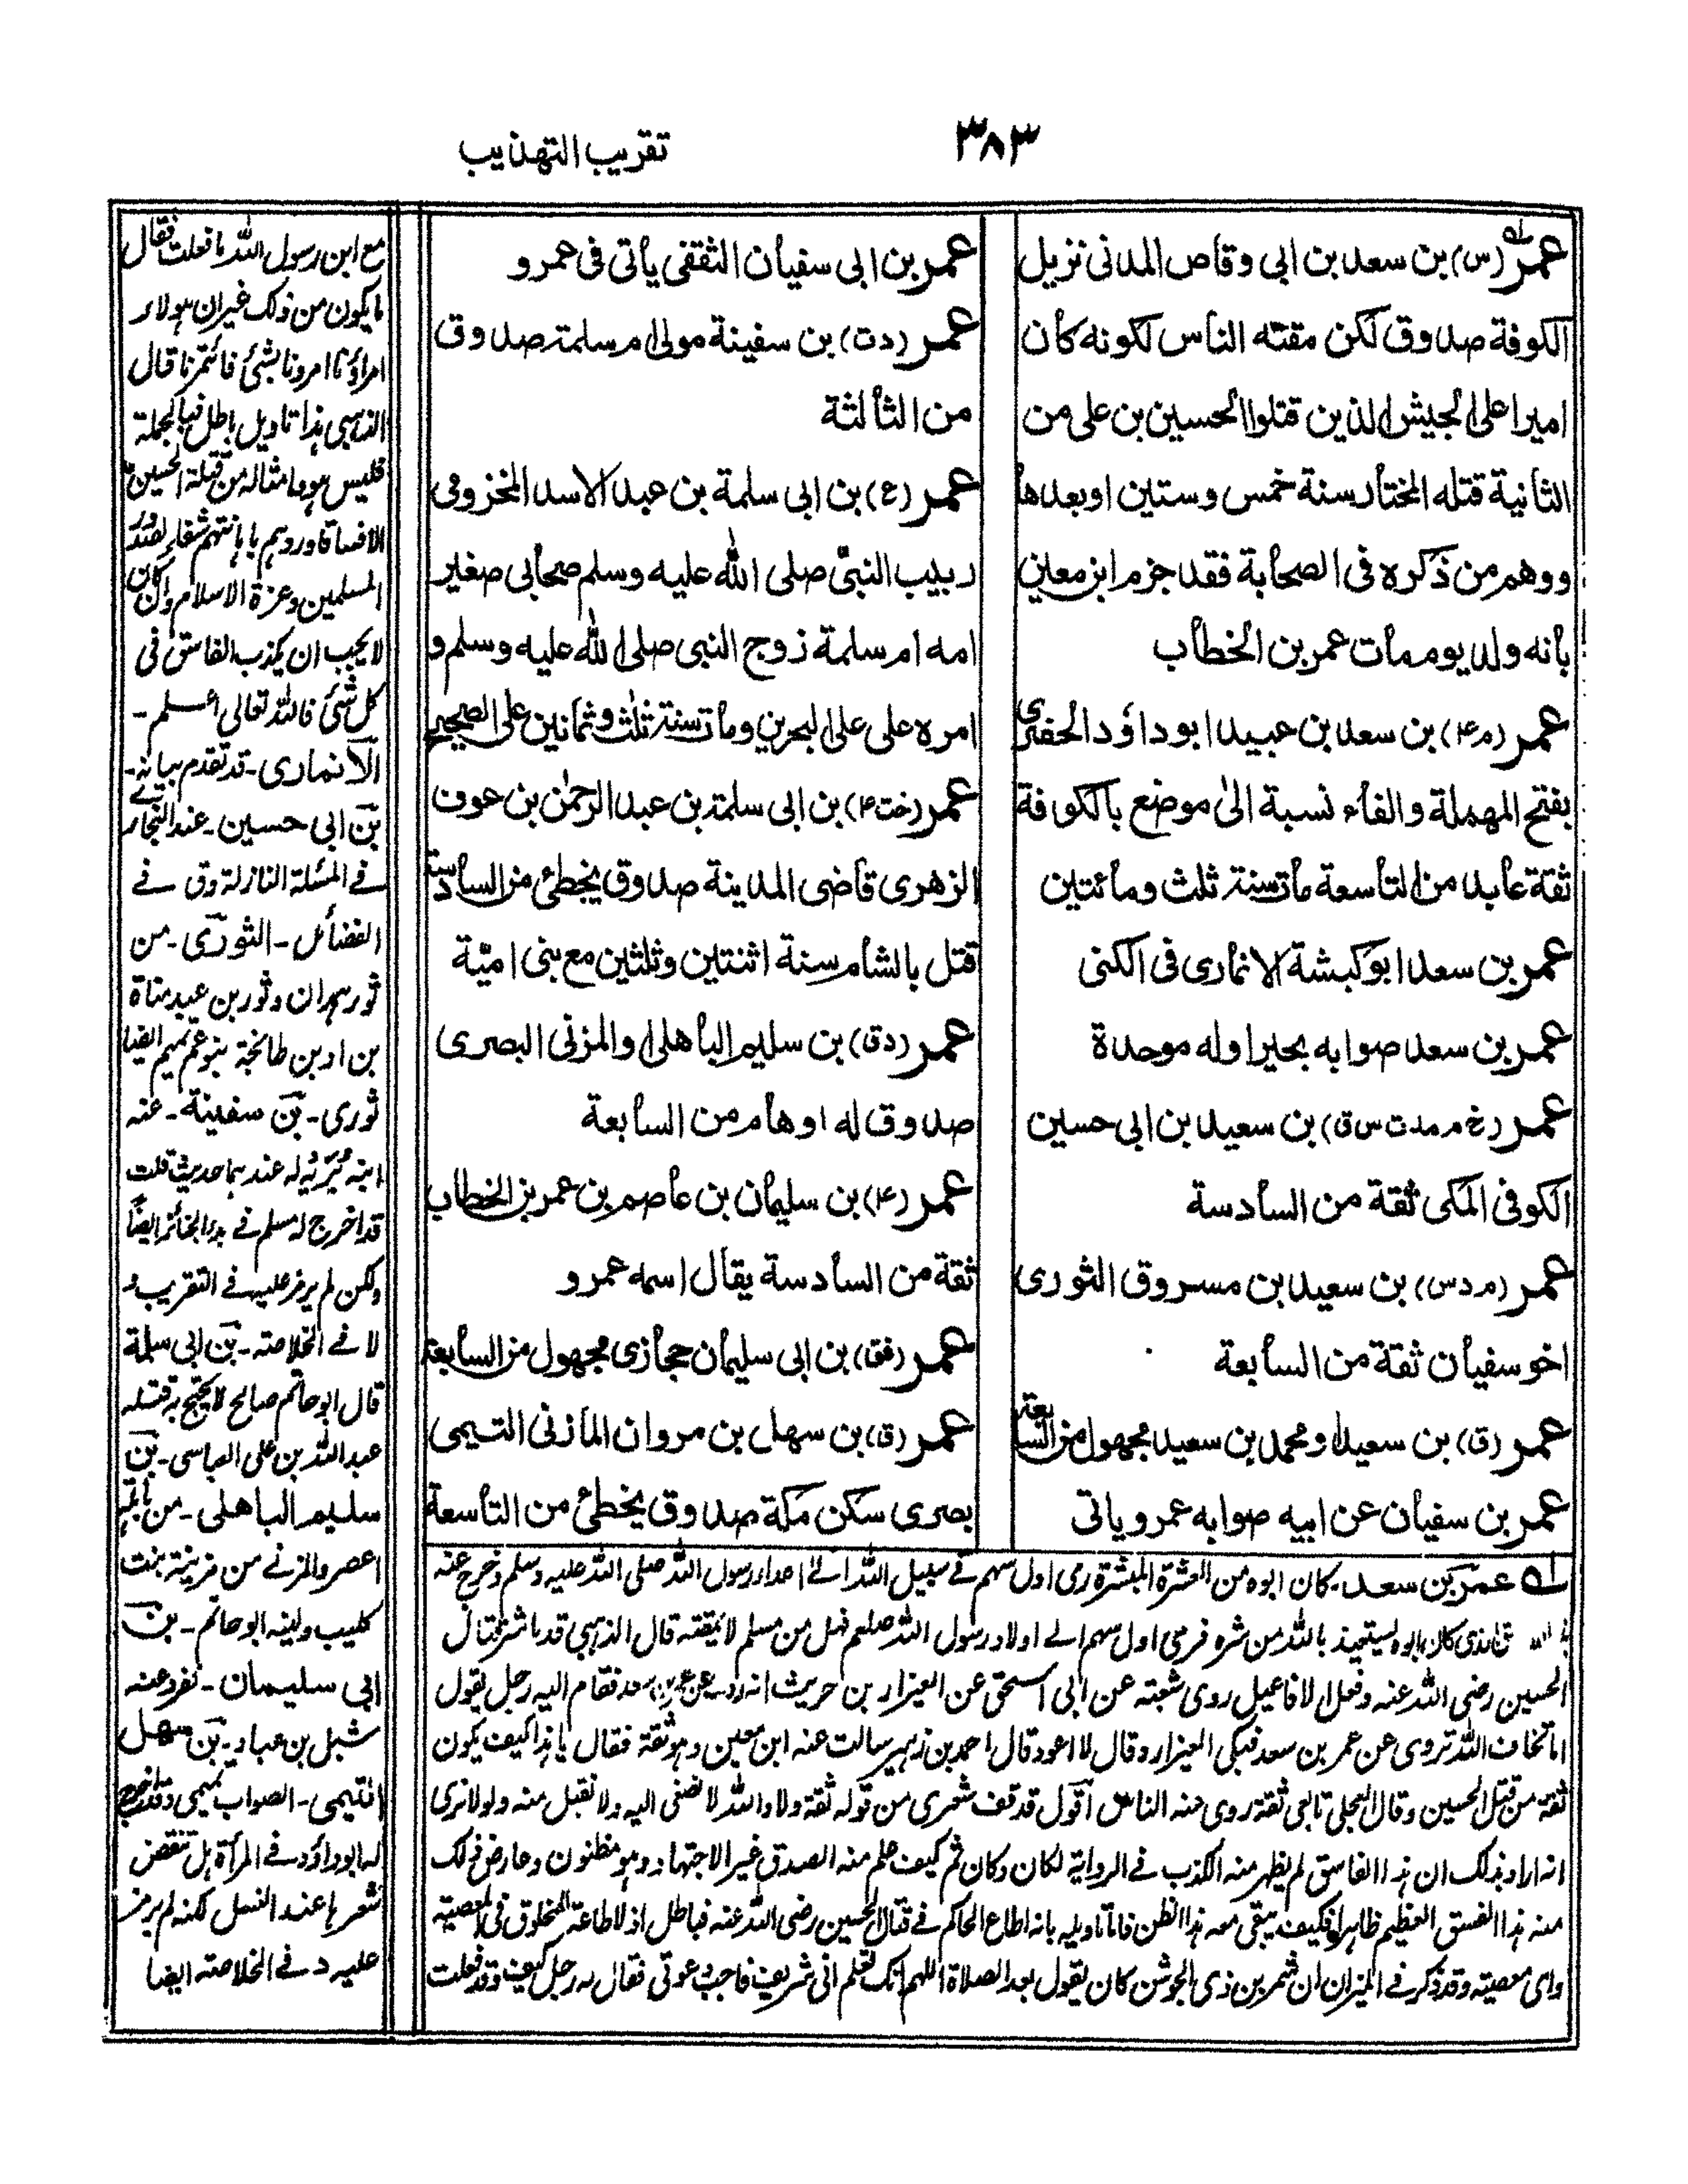 ٣٨٣
تقريب التهذيب
عمر (س) بن سعد بن ابى وقاص المدنى نزيل
الكوفة صدوق لكن مقته الناس لكونه كان
اميرا على الجيش الذين قتلوا الحسين بن على من
الثانية قتله المختار سنة خمس وستين اوبعدها
ووهم من ذكره فى الصحابة فقد جزم ابن معين
بأنه ولد يوم مات عمر بن الخطاب
عمر (م۴) بن سعد بن عبيد ابو داؤد الحفرى
بفتح المهملة والفاء نسبة الىٰ موضع بالكوفة
ثقة عابد من التاسعة مات سنة ثلث ومائتين
عمر بن سعد ابو كبشة الانمارى فى الكنى
عمر بن سعد صوابه بحير اوله موحدة
عمر (خ م مد ت س ق) بن سعيد بن ابى حسين
الكوفى المكى ثقة من السادسة
عمر (م د س) بن سعيد بن مسروق الثورى
اخو سفيان ثقة من السابعة
عمر (ق) بن سعيد او محمد بن سعيد مجهول من السابعة
عمر بن سفيان عن ابيه صوابه عمرو ياتى
عمر بن ابى سفيان الثقفى يأتى فى عمرو
عمر (دت) بن سفينة مولى ام سلمة صدوق
من الثالثة
عمر (ع) بن ابى سلمة بن عبد الاسد المخزومى
ربيب النبىّ صلى الله عليه وسلم صحابى صغير
امه ام سلمة زوج النبى صلى الله عليه وسلم و
امره على على البحرين ومات سنة ثلث وثمانين على الصحيح
عمر (خت ۴) بن ابى سلمة بن عبد الرحمٰن بن عوف
الزهرى قاضى المدينة صدوق يخطئ من السادسة
قتل بالشام سنة اثنتين وثلثين مع بنى اميّة
عمر (دق) بن سليم الباهلى او المزنى البصرى
صدوق له اوهام من السابعة
عمر (۴) بن سليمان بن عاصم بن عمر بن الخطاب
ثقة من السادسة يقال اسمه عمرو
عمر (فق) بن ابى سليمان حجازى مجهول من السابعة
عمر (ق) بن سهل بن مروان المازنى التيمى
بصرى سكن مكة صدوق يخطئ من التاسعة
له عمر بن سعد۔ كان ابوه من العشرة المبشرة رمى اول سهم فے سبيل الله الے اعداء رسول الله صلى الله عليه وسلم وخرج عنه
كان ابوه يستعيذ بالله من شره فرمى اول سهم الے اولاد رسول الله صلعم فهل من مسلم لا يمقته قال الذهبى قد باشر قتال
الحسين رضى الله عنه وفعل الافاعيل روى شعبة عن ابى اسحق عن العيزار بن حريث انه روى عن عمر بن سعد فقام اليه رجل يقول
اما تخاف الله تروى عن عمر بن سعد فبكى العيزار وقال لا اعود قال احمد بن زهير سالت عنه ابن معين وهو ثقة فقال يا هذا كيف يكون
ثقة من قتل الحسين وقال العجلى تابعى ثقة روى عنه الناس اقول قد قف شعرى من قوله ثقة ولا والله لا نصغى اليه ولا نقبل منه ولو لا نرى
انه اراد بذلك ان هذا الفاسق لم يظهر منه الكذب فے الرواية لكان وكان ثم كيف علم منه الصدق غير الاجتهاد وهو مظنون وعارض ذلك
منه هذا الفسق العظيم ظاهرا فكيف يبقى معه هذا الظن فاما تاويله بانه اطاع الحاكم فے قتال الحسين رضى الله عنه فباطل اذ لا طاعة للمخلوق فى المعصية
واى معصية وقد ذكر فے الميزان ان شمر بن ذى الجوشن كان يقول بعد الصلاة اللهم انك تعلم انى شريف فاجب دعوتى فقال له رجل كيف وقد فعلت
مع ابن رسول الله ما فعلت فقال
ما يكون من ذلك غير ان هولاء
امراؤنا امرونا بشئ فائتمرنا قال
الذهبى هذا تاويل باطل فبالجملة
فليس هو وامثاله من قتلة الحسين
المسلمين وعزة الاسلام وان كان
لا يجب ان يكذب الفاسق فى
كل شئ فالله تعالى اعلم۔
الانمارى۔ قد تقدم بيانه۔
بن ابى حسين۔ عند البخارى
فے المسئلة النازلة وق فے
الفضائل۔ الثورى۔ من
ثور همدان وثور بن عبد مناة
بن اد بن طابخة بنو عم تميم ايضا
ثورى۔ بن سفينة۔ عنه
ابنه بُرَيْه له عندهما حديث قلت
قد اخرج له مسلم فے ايضًا
ولكن لم يرمز عليه فے التقريب و
لا فے الخلاصة۔ بن ابى سلمة
قال ابو حاتم صالح لا يحتج به قتله
عبد الله بن على العباسى۔ بن
سليم الباهلى۔ من باهلة
اعصر والمزنے من مزينة بنت
كليب ولينه ابو حاتم۔ بن
ابى سليمان۔ تفرد عنه
شبل بن عباد۔ بن سهل
التيمى۔ الصواب تميمى وقد اخرج
له ابو داؤد فے المرأة هل تنقض
شعرها عند الغسل لكنه لم يرمز
عليه د فے الخلاصة ايضا